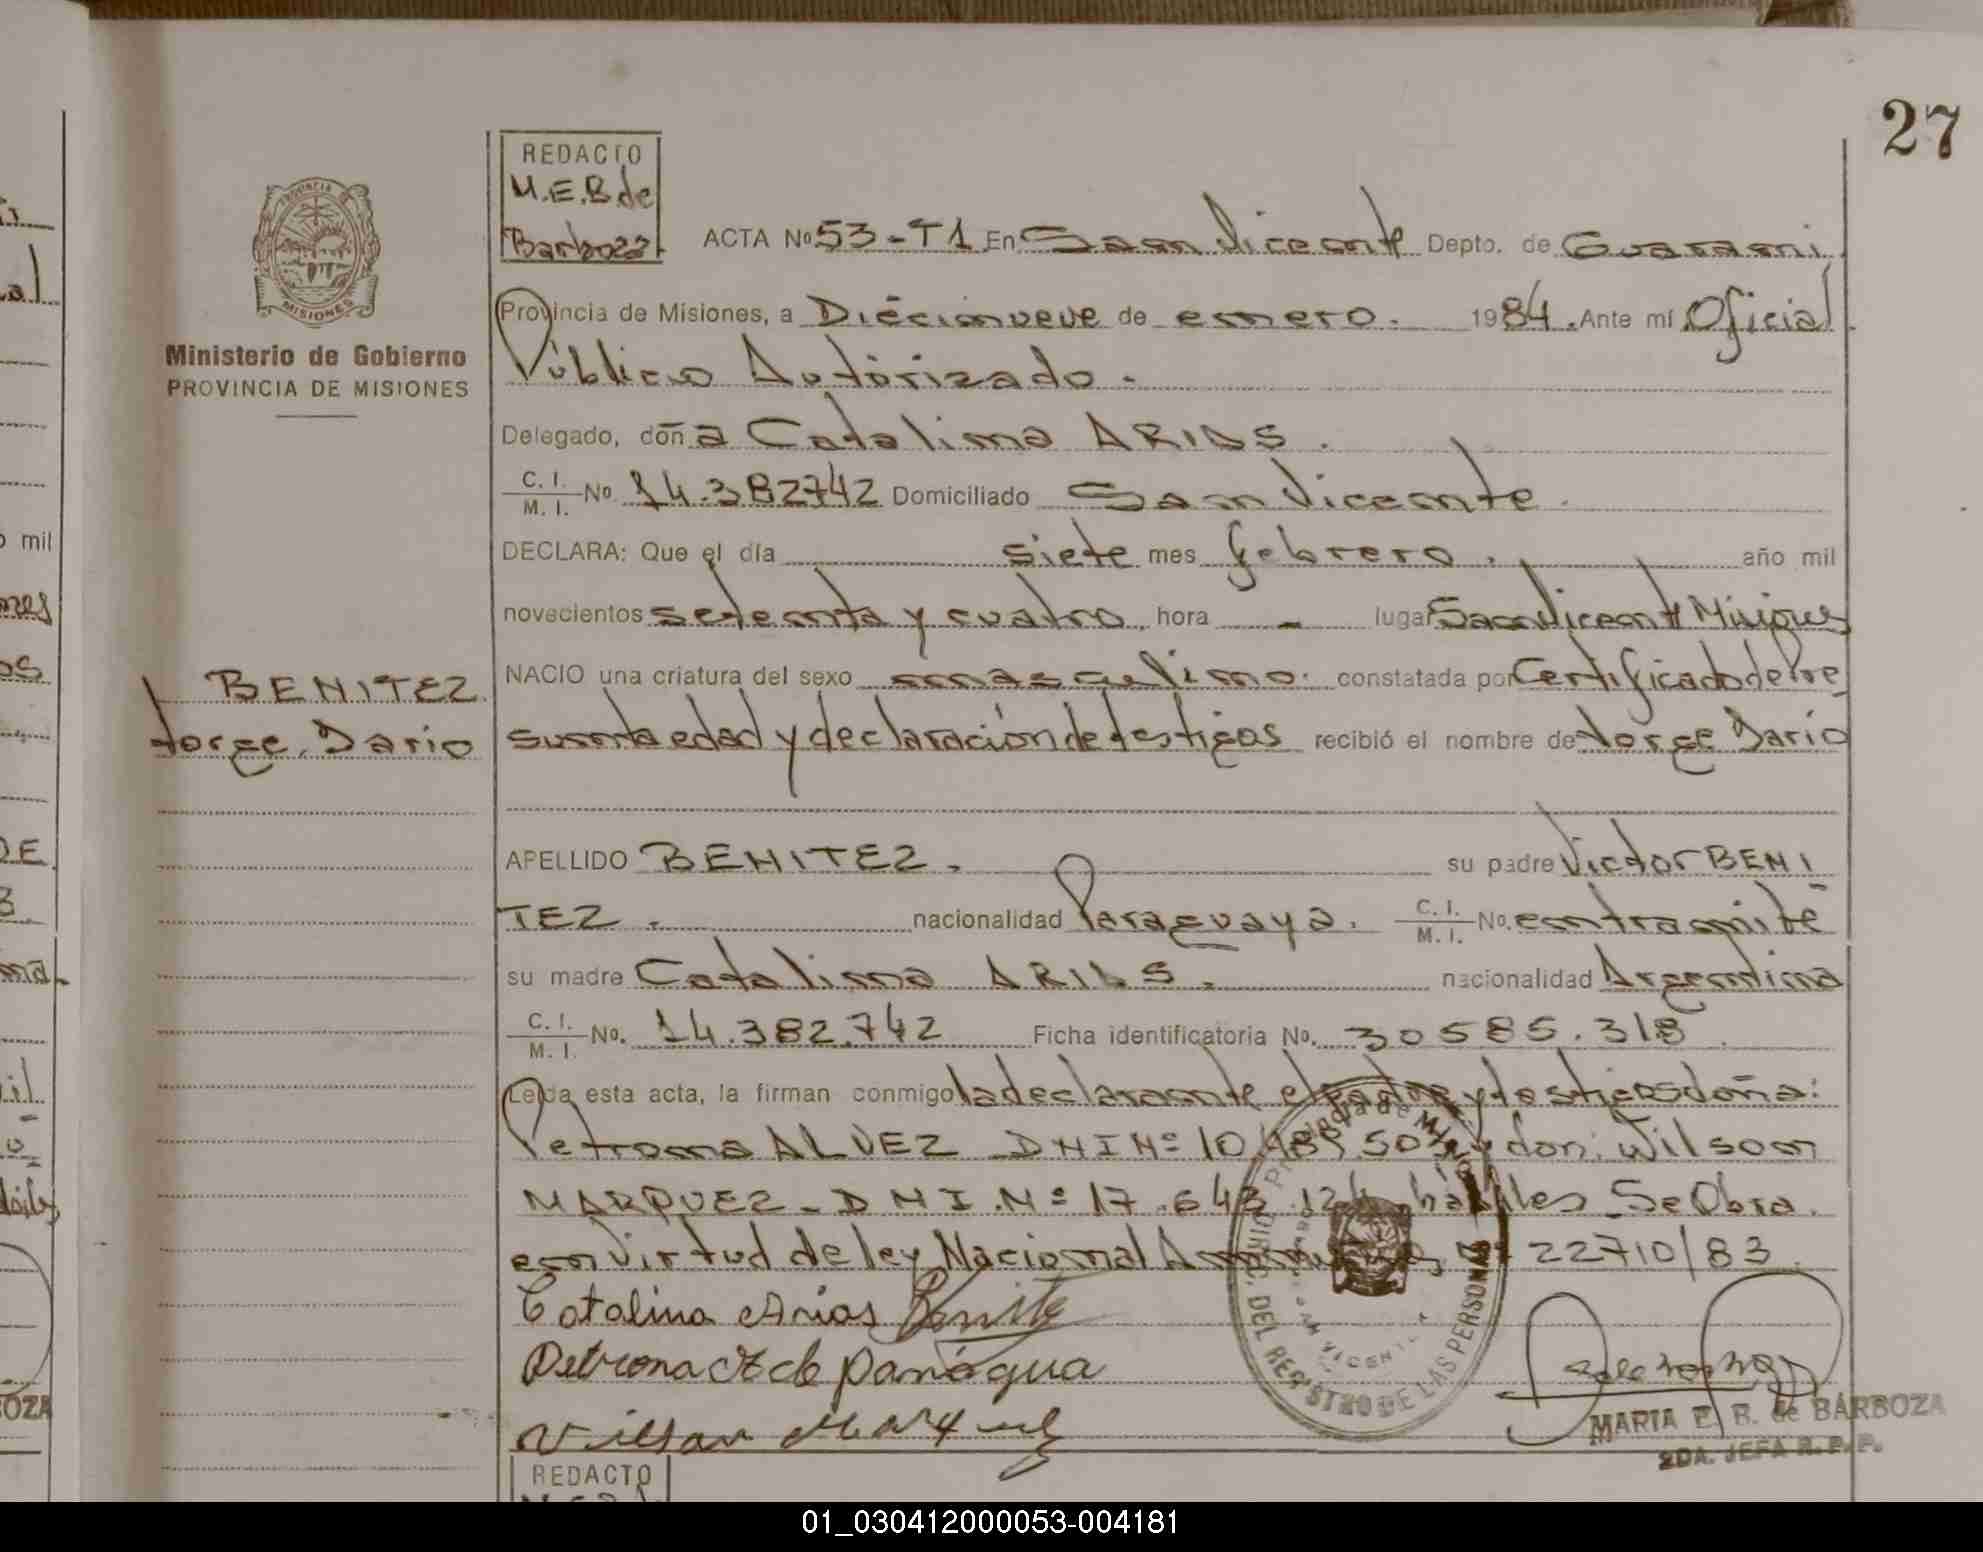 27
REDACTO
M.E.B de
Barboza
ACTA Nº 53-T1 En San Vicente Depto. de Guarani
Provincia de Misiones, a Diecinueve de enero. 1984. Ante mí Oficial
Público Autorizado.
Ministerio de Gobierno
PROVINCIA DE MISIONES
Delegado, doña Catalina ARIAS.
C. I.
M. I. Nº 14.382742 Domiciliado San Vicente.
DECLARA: Que el día siete mes febrero. año mil
novecientos setenta y cuatro, hora - lugar San Vicente Misiones
NACIO una criatura del sexo masculino. constatada por Certificado de Pre
sunta edad y declaración de testigos recibió el nombre de Jorge Dario
BENITEZ
Jorge Dario
APELLIDO BENITEZ. su padre Victor BENI
TEZ. nacionalidad Paraguaya. C. I.
M. I. Nº. en tramite
su madre Catalina ARIAS. nacionalidad Argentina
C. I.
M. I. No. 14.382.742 Ficha identificatoria No. 30585.318
Leída esta acta, la firman conmigo la declarante el padre y testigos doña:
Petrona ALVEZ - DNI Nº 10. y don: Wilson
MARQUEZ - DNI.Nº 17.643.124 hábiles. Se Obra.
en virtud de ley Nacional 22710/83.
Catalina Arias Benite
Petrona de Paniagua
Wilson Marquez
PROVINCIA DE MISIONES
DEL REGISTRO DE LAS PERSONAS
SAN VICENTE
MARIA E. B. de BARBOZA
2DA. JEFA R.P.P.
REDACTO
01_030412000053-004181